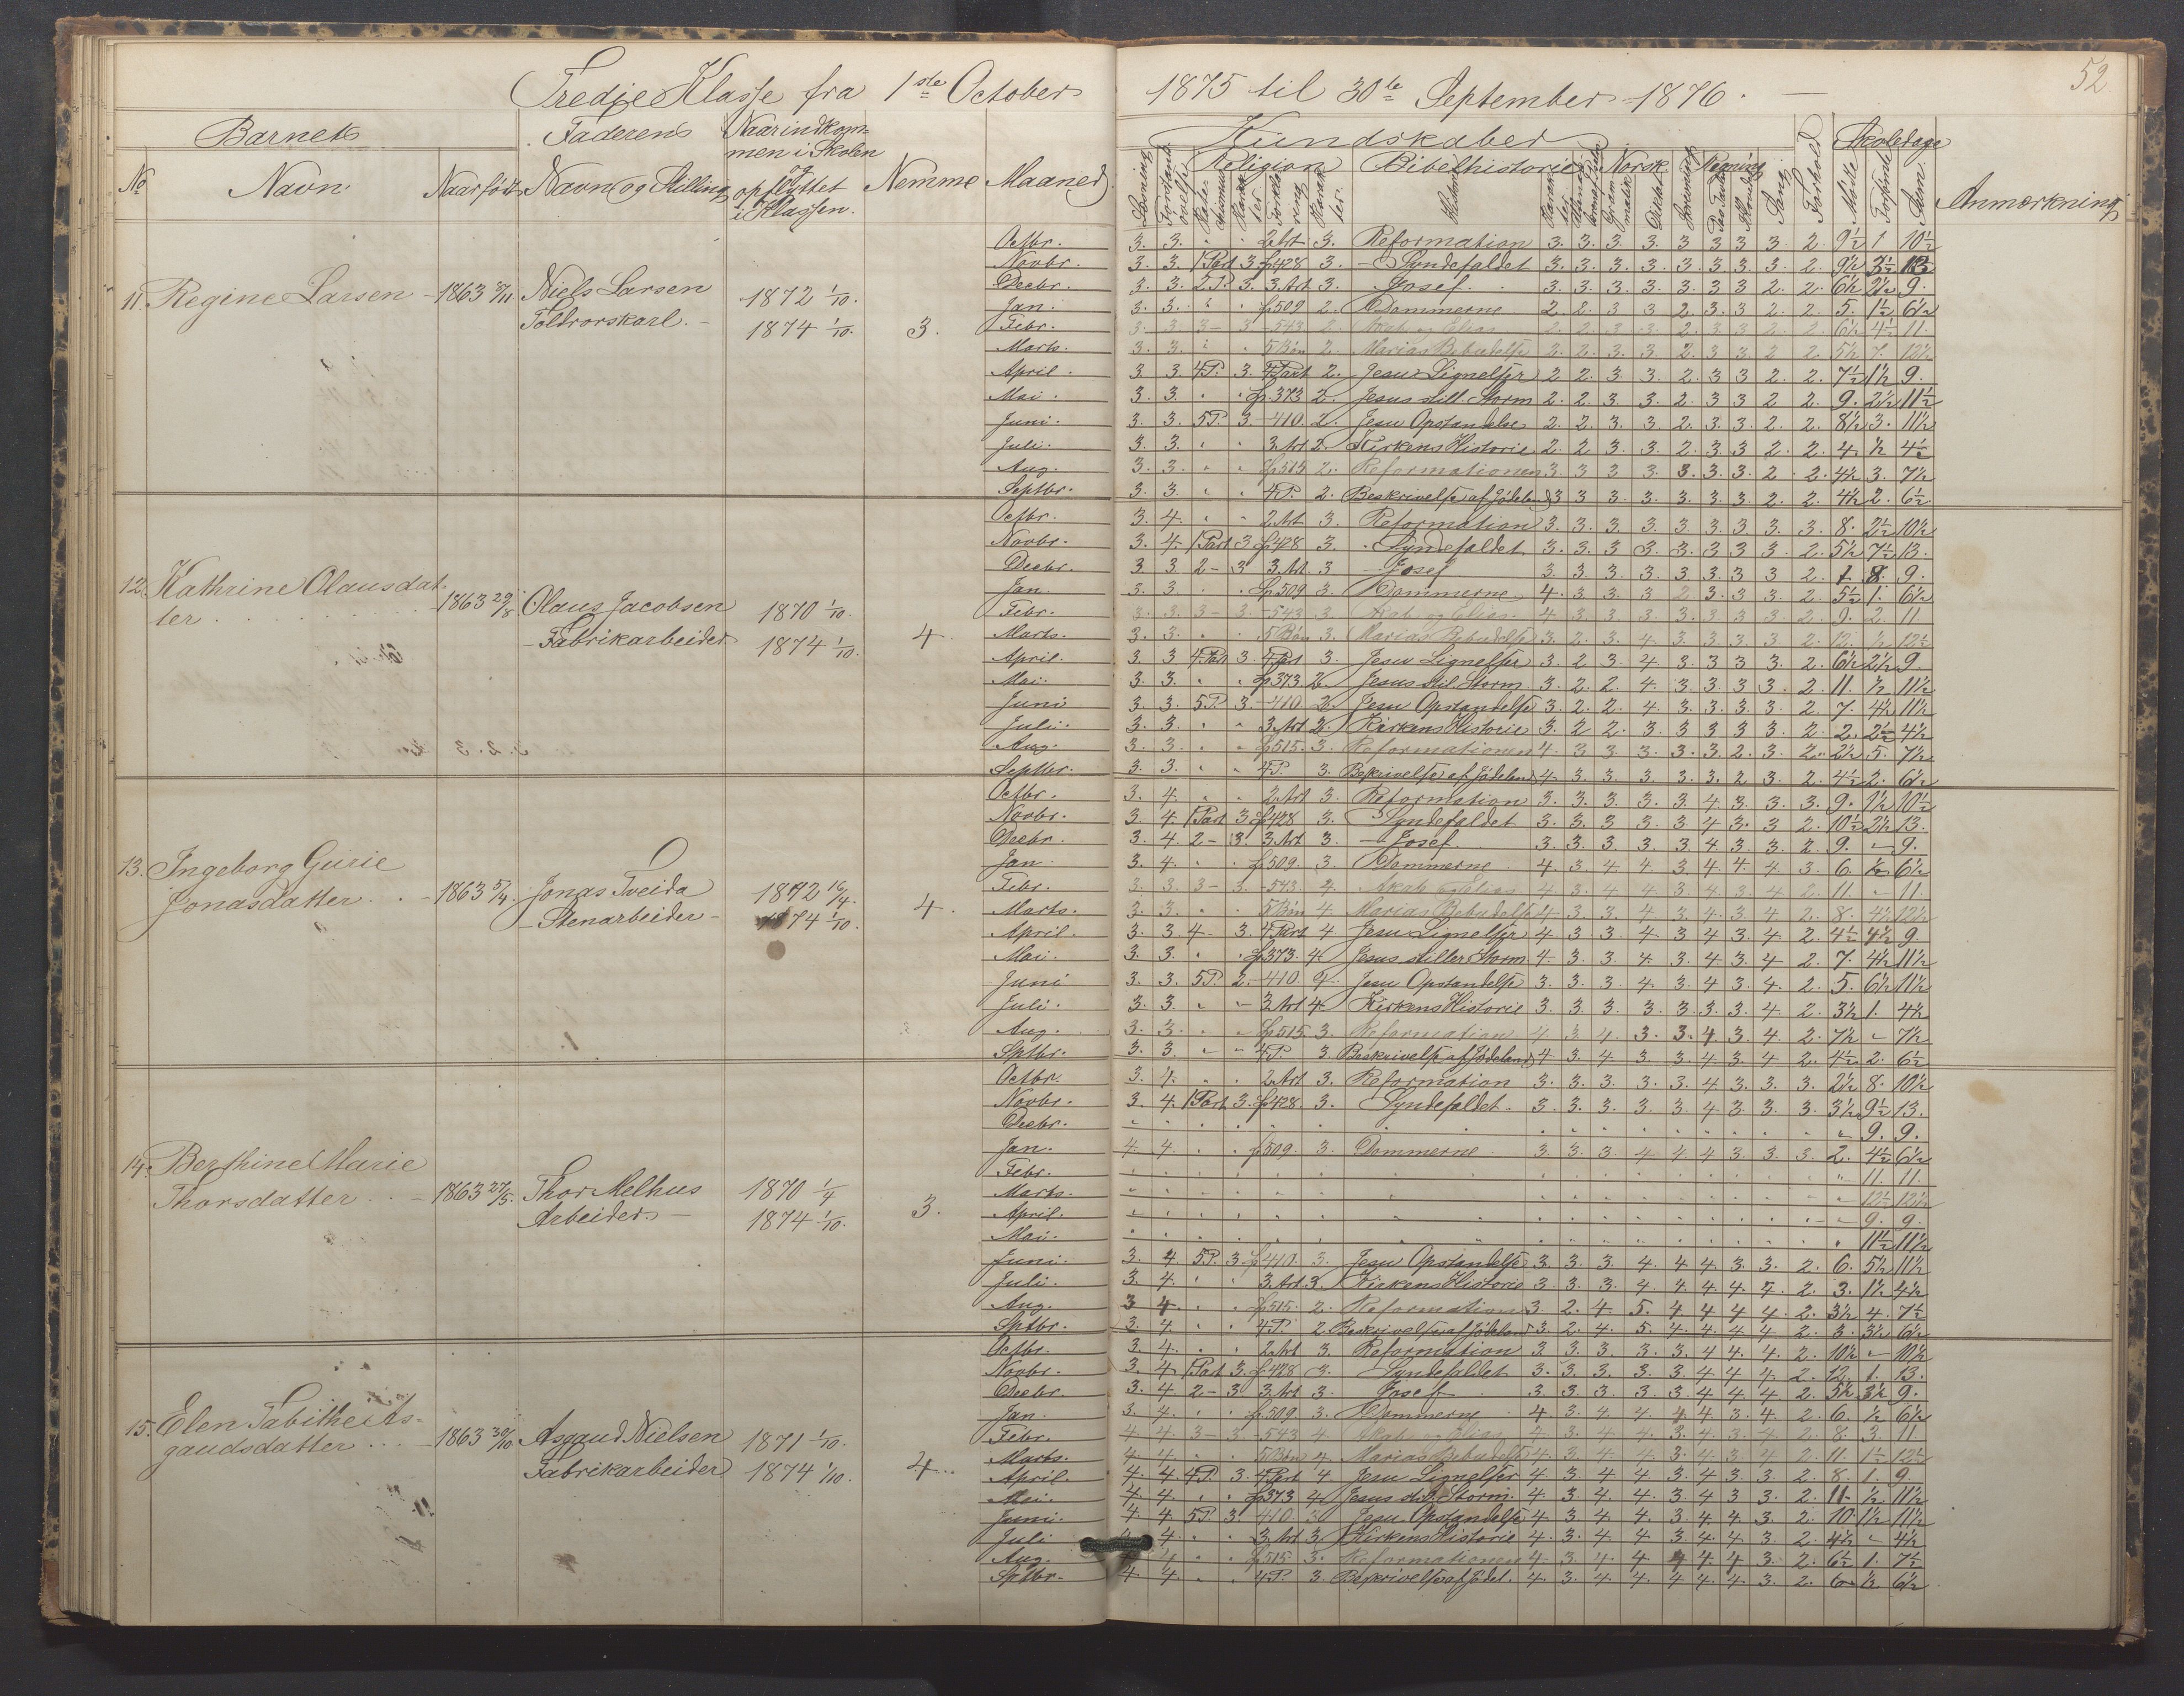 Tredje Klasse fra 1ste October 1875 til 30te September 1876.
52
Barnets
Faderens
Naar indkom-
men i Skolen
og
opflyttet
i Klassen.
No
Navn
Naar født
Navn og Stilling
Nemme
Maaned
Kundskaber
Religion
Bibelhistorie
Norsk
Regning
Sang
Forhold
Skoledage
Mødte
Forsømte
Sum
Anmærkning
11. Regine Larsen 1863 Niels Larsen 1872 1/10.
Toldrorskarl. 1874 1/10. 3.
Octbr. 3. 3. 2 Art 3. Reformation 3. 3. 3. 3. 3 3 3 3 2. 9½ 1 10½
Novbr. 3. 3. 1 Part 3 428 3. Syndefaldet 3. 3. 3. 3. 3. 3. 3. 3. 2. 9½
Decbr. 3. 3. 2 P. 3. 3 Art 3. Josef 3. 3. 3. 3. 3. 3 3 2. 2. 6½ 2½ 9.
Jan. 3. 3. 509 2. Dommerne 2 2 3 3 2. 3. 3 2. 2. 5. 1½ 6½
Febr. 3. 3 3 - 3 - 543 2. 6½ 4½ 11.
Marts. 3. 3. 5 Bøn 2. Marias Bebudelse 2. 2. 3. 3. 2. 3 3. 2 2. 5½ 7. 12½
April. 3 3. 4 P. 3. 4 Part 2. Jesu Lignelser 2 2. 3 3. 2. 3 3 2. 2. 7½ 1½ 9.
Mai. 3. 3. 373 2. Jesus still. Storm 2. 2. 3. 3. 2. 3 3 2 2. 9. 2½ 11½
Juni. 3. 3. 5 P. 3. 410. 2. Jesu Opstandelse 2. 2. 3. 3 2. 3. 3. 2. 2. 8½ 3. 11½
Juli. 3. 3. 3 Art 2. Kirkens Historie 2. 2 3. 3. 2. 3 3. 2. 2. 4. ½ 4½
Aug. 3. 3. 515 2. Reformationen 3. 3 3 3. 3. 3. 3. 2 2. 4½ 3. 7½
Septbr. 3. 3. 4 P. 2. Beskrivelse af Jødeland 3 3 3. 3. 3. 3. 3. 2. 2. 4½ 2. 6½
12. Kathrine Olausdat-
ter 1863 29/8 Olaus Jacobsen 1870 1/10.
Fabrikarbeider 1874 1/10. 4.
Octbr. 3. 4. 2 Art 3. Reformation 3. 3. 3. 3. 3. 3. 3. 3. 3. 8. 2½ 10½
Novbr. 3. 4. 1 Part 3 428 3. Syndefaldet 3. 3. 3 3. 3. 3 3 3. 2. 5½ 7½ 13.
Decbr. 3 3. 2 - 3 3 Art 3 Josef 3. 3. 3. 3. 3. 3. 3 3 2. 1. 8. 9.
Jan. 3. 3. 509 3. Dommerne 4. 3. 3. 3 2 3. 3. 3. 2. 5½ 1. 6½
Febr. 3. 3. 3 - 3. - 543 3 4 3. 3 3. 3. 3 3 3. 2. 9. 2. 11
Marts. 3. 3. 5 Bøn 3. Marias Bebudelse 3. 2. 3. 4 3 3 3. 3 2. 12. ½ 12½
April. 3 3 4 Part 3. 4 Part 3. Jesu Lignelser 3. 2 3. 4. 3. 3 3 3. 2. 6½ 2½ 9.
Mai. 3. 3. 373 2. Jesus stil. Storm 3. 2. 2. 4. 3. 3. 3 3. 2. 11. ½ 11½
Juni 3. 3. 5 P. 3. - 410 2. Jesu Opstandelse 3. 2. 2. 4 3. 3. 3. 3. 2. 7. 4½ 11½
Juli. 3. 3. 3 Art 2. Kirkens Historie 3. 2 2. 3. 3 3 3 3. 2. 2. 2½ 4½
Aug. 3. 3. 515. 3. Reformationen 4. 3 3 3. 3. 3 2. 3. 2. 2½ 5. 7½
Septbr. 3. 3. 4 P. 3. Beskrivelse af Jødeland 4 3. 3. 3. 3. 3. 2 3. 2. 4½ 2. 6½
13. Ingeborg Gurie
Jonasdatter 1863 5/4. Jonas Tveida 1872 16/4.
Stenarbeider 1874 1/10. 4.
Octbr. 3. 4. 2 Art 3. Reformation 3. 3. 3. 3. 3 4 3. 3. 3. 9. 1½ 10½
Novbr. 3. 4. 1 Part 3 428 3. Syndefaldet 3. 3. 3 3. 3 4 3. 3 2. 10½ 2½ 13.
Decbr. 3. 4. 2 - 3. 3 Art 3 Josef 3. 3. 3. 3. 3 4 3. 3. 2. 9. - 9.
Jan. 3. 4. 509. 3 Dommerne 4. 3. 4. 4 3 4. 4. 4 3. 6. ½ 6½
Febr. 3. 3. 3 - 3. - 543. 4. Akab og Elias 4 3. 4 4. 3. 4 3. 4 2. 11. - 11.
Marts. 3. 3. 5 Bøn 4 Marias Bebudelse 4 3. 3. 4. 3 4. 3. 4 2. 8. 4½ 12½
April. 3. 3. 4 - 3. 4 Part 4 Jesu Lignelser 4 3. 3 4. 3 4 3. 4. 2. 4½ 4½ 9.
Mai. 3. 3. 373. 4 Jesus stiller Storm 4 3. 3. 4. 3. 4 3. 4 2. 7. 4½ 11½
Juni 3. 3. 5 P. 2. - 410 4. Jesu Opstandelse 3. 3. 3. 4. 3. 4 3. 4. 2. 5. 6½ 11½
Juli. 3. 3. 3 Art 4. Kirkens Historie 3. 3. 3. 3. 3. 3. 3. 4 2. 3½ 1. 4½
Aug. 3. 3. 515 3. Reformation 4 3 4 3. 3. 4 3. 4 2. 7½ - 7½
Sptbr. 3. 3. 4 P. 3. Beskrivelse af Jødeland 4. 3. 4 3. 3 4 3. 4 2. 4½ 2. 6½
14. Berthine Marie
Thorsdatter 1863 27/5. Thor Melhus 1870 1/4
Arbeider 1874 1/10. 3.
Octbr. 3. 4. 2 Art 3. Reformation 3. 3. 3. 3. 3. 4 3. 3. 3. 2½ 8. 10½
Novbr. 3. 4. 1 Part 3. 428 3. Syndefaldet. 3. 3. 3. 3. 3. 4 3. 3. 3. 3½ 9½ 13.
Decbr. 9. 9.
Jan. 4 4 509. 3. Dommerne 3. 3. 3. 4 4 4 3. 3. 3. 2. 4½ 6½
Febr. 11. 11.
Marts. 12½ 12½
April. 9. 9.
Mai. 11½ 11½
Juni. 3. 4 5 P. 3 410 3. Jesu Opstandelse 3. 3. 3. 4. 4 4 3. 3. 2. 6. 5½ 11½
Juli. 3. 4. 3 Art 3. Kirkens Historie 3. 3. 3. 4 4. 4. 4. 4. 2. 3. 1½ 4½
Aug. 3 4. 515. 2. Reformation 3. 2. 4. 5. 4 4 4 4. 2. 3½ 4. 7½
Sptbr. 3. 4. 4 P. 2. Beskrivelse af Jødeland 3. 2. 4. 5. 4. 4. 4. 4. 2. 3. 3½ 6½
15. Elen Tabithe As-
gaudsdatter 1863 30/10 Asgaud Nielsen 1871 1/10.
Fabrikarbeider 1874 1/10. 4.
Octbr. 3. 4. 2 Art 3. Reformation 3. 3. 3. 3. 3. 4 4. 4. 2. 10½ - 10½
Novbr. 3. 4. 1 Part 3. 428 3. Syndefaldet 3. 3. 3. 3. 3. 4 4 4. 2. 12. 1. 13.
Decbr. 3. 4 2 - 3 3 Art 3. Josef 3 3. 3 3. 3. 4 4 4 2. 5½ 3½ 9.
Jan. 3. 4. 509 3. Dommerne 4. 3. 4. 4. 4 4. 3. 4. 2. 6. ½ 6½
Febr. 4 4. 3 - 3 - 543 4 4. 3. 4. 4. 3. 4 3. 4. 2. 8. 3. 11.
Marts. 4 4. 5 Bøn 4. Marias Bebudelse 4. 3. 4. 4. 3. 4 3. 4 2. 11. 1½ 12½
April. 4. 4. 4 P. 3. 4 Part 4 Jesu Lignelser 4 3. 4 4 3. 4 3. 3 2. 8. 1. 9.
Mai. 4. 4. 373 4 Jesus stil. Storm. 4. 3 4. 4. 3. 4 3 3. 2. 11. ½ 11½
Juni. 4 4. 5 P. 3. 410. 3. Jesu Opstandelse 4 3. 4. 4. 3. 4 4 3. 2. 10. 1½ 11½
Juli 4. 3 Art 3. Kirkens Historie 4. 3. 4. 4 3. 4 4. 3. 2. 4½ - 4½
Aug. 4. 515 3. Reformationen 4. 3. 4. 4 4 4. 4 3. 2. 6½ 1. 7½
Sptbr. 4. 4. 4 P. 3. Beskrivelse af Jødel. 4. 3. 4. 4. 4 4. 4. 3. 2. 6. ½ 6½